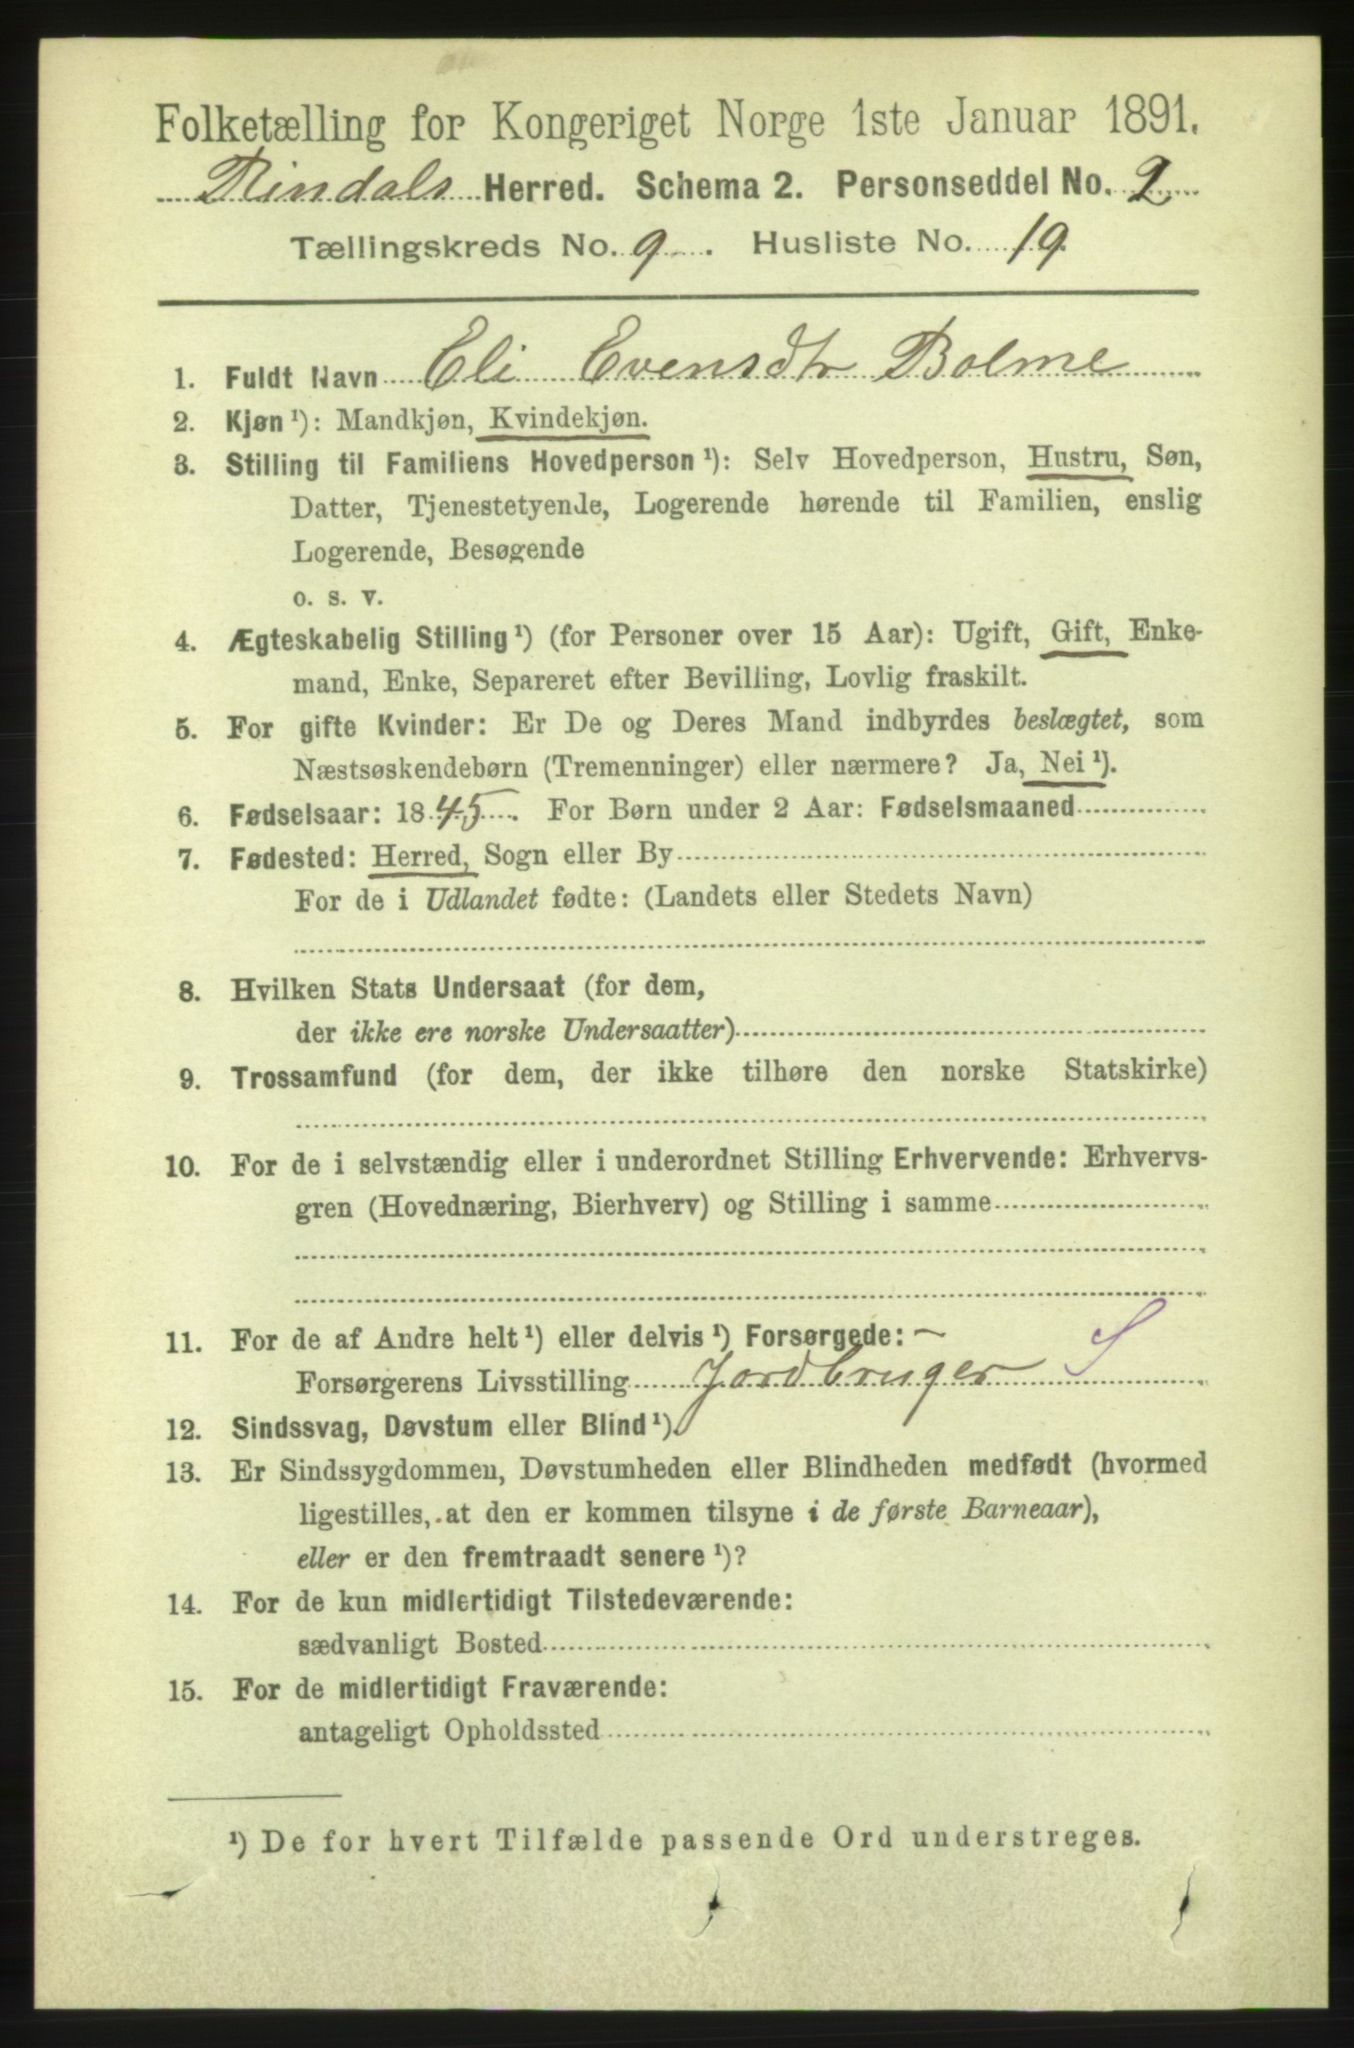 Folketælling for Kongeriget Norge 1ste Januar 1891.
Rindals Herred. Schema 2. Personseddel No. 2
Tællingskreds No. 9. Husliste No. 19.
1. Fuldt Navn Eli Evensdtr Bolme
2. Kjøn ¹): Mandkjøn, Kvindekjøn.
3. Stilling til Familiens Hovedperson ¹): Selv Hovedperson, Hustru, Søn,
Datter, Tjenestetyende, Logerende hørende til Familien, enslig
Logerende, Besøgende
o. s. v.
4. Ægteskabelig Stilling ¹) (for Personer over 15 Aar): Ugift, Gift, Enke-
mand, Enke, Separeret efter Bevilling, Lovlig fraskilt.
5. For gifte Kvinder: Er De og Deres Mand indbyrdes beslægtet, som
Næstsøskendebørn (Tremenninger) eller nærmere? Ja, Nei ¹).
6. Fødselsaar: 1845. For Børn under 2 Aar: Fødselsmaaned
7. Fødested: Herred, Sogn eller By
For de i Udlandet fødte: (Landets eller Stedets Navn)
8. Hvilken Stats Undersaat (for dem,
der ikke ere norske Undersaatter)
9. Trossamfund (for dem, der ikke tilhøre den norske Statskirke)
10. For de i selvstændig eller i underordnet Stilling Erhvervende: Erhvervs-
gren (Hovednæring, Bierhverv) og Stilling i samme
11. For de af Andre helt ¹) eller delvis ¹) Forsørgede: ~
Forsørgerens Livsstilling Jordbruger S
12. Sindssvag, Døvstum eller Blind ¹).
13. Er Sindssygdommen, Døvstumheden eller Blindheden medfødt (hvormed
ligestilles, at den er kommen tilsyne i de første Barneaar),
eller er den fremtraadt senere ¹)?
14. For de kun midlertidigt Tilstedeværende:
sædvanligt Bosted
15. For de midlertidigt Fraværende:
antageligt Opholdssted
¹) De for hvert Tilfælde passende Ord understreges.